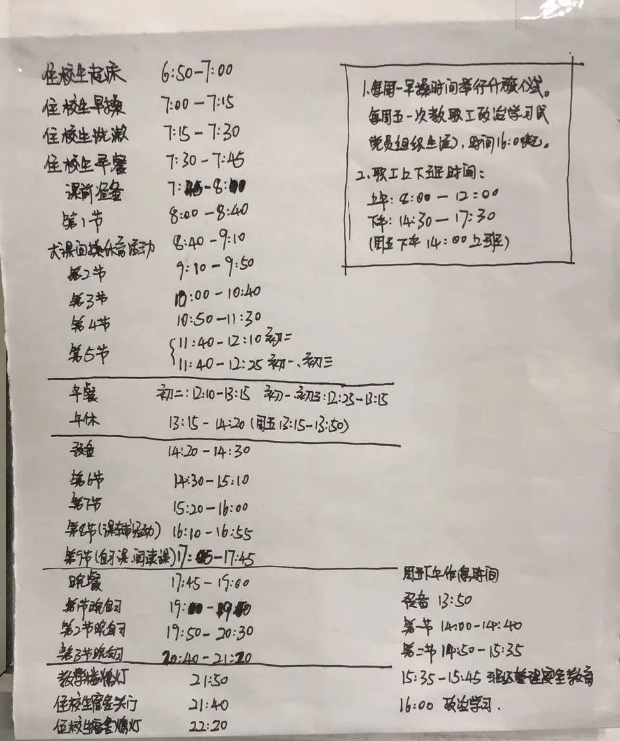 住校生起床 6:50-7:00
住校生早操 7:00-7:15
住校生洗漱 7:15-7:30
住校生早餐 7:30-7:45
课前准备 7: -8:00
第1节 8:00-8:40
大课间 活动 8:40-9:10
第2节 9:10-9:50
第3节 10:00-10:40
第4节 10:50-11:30
第5节 {11:40-12:10 初二
11:40-12:25 初一、初三
午餐 初二:12:10-13:15 初一、初三:12:25-13:15
午休 13:15-14:20(周五13:15-13:50)
预备 14:20-14:30
第6节 14:30-15:10
第7节 15:20-16:00
第8节( 活动) 16:10-16:55
第9节(自习课.阅读课)17: -17:45
晚餐 17:45-19:00
第1节晚自习 19:00-
第2节晚自习 19:50-20:30
第3节晚自习 20:40-21:20
教学楼熄灯 21:50
住校生宿舍关门 21:40
住校生宿舍熄灯 22:20
1.每周一早操时间举行升旗仪式。
每周五一次教职工政治学习或
党员组织生活),时间16:00起。
2.职工上下班时间:
上午:8:00-12:00
下午:14:30-17:30
(周五下午14:00上班)
周五下午作息时间
预备 13:50
第一节 14:00-14:40
第二节 14:50-15:35
15:35-15:45 安全教育
16:00 政治学习.